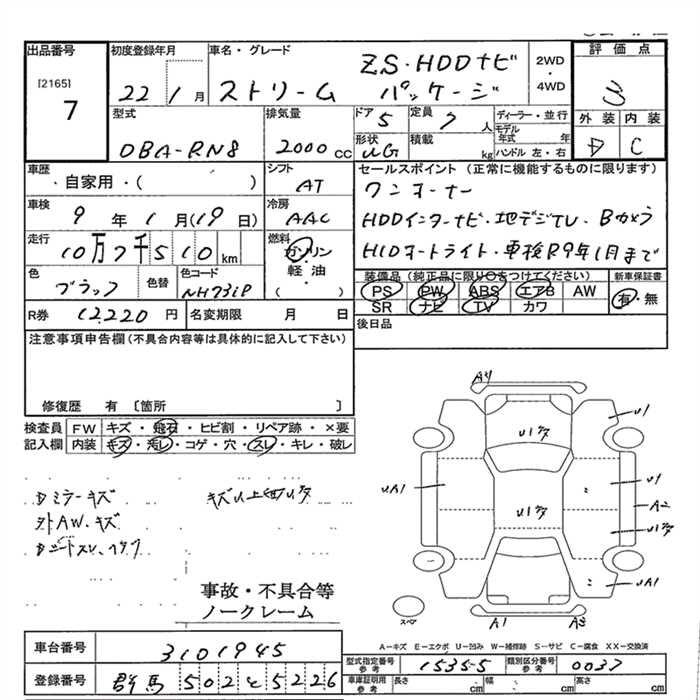 出品番号
[2165]
7
初度登録年月
22年 1月
車名・グレード
ストリーム
ZS・HDDナビ
パッケージ
2WD
・
4WD
評価点
3
外装 内装
D C
型式
DBA-RN8
排気量
2000 cc
ドア
5
定員
7 人
形状
UG
積載
kg
ディーラー・並行
モデル年式 年
ハンドル 左・右
車歴
自家用・( )
シフト
AT
車検
9 年 1 月(19 日)
冷房
AAC
走行
10万7千510 km
燃料
ガソリン
軽・油
( )
色
ブラック
色替
色コード
NH731P
R券
12220 円
名変期限 月 日
セールスポイント (正常に機能するものに限ります)
ワンオーナー
HDDインターナビ・地デジTV・Bカメラ
HIDオートライト・車検R9年1月まで
装備品(純正品に限り○をつけてください)
新車保証書
PS PW ABS エアB AW
SR ナビ TV カワ
有・無
後日品
注意事項申告欄(不具合内容等は具体的に記入して下さい)
修復歴 有 〔箇所 〕
検査員記入欄
FW キズ・飛石・ヒビ割・リペア跡・×要
内装 キズ・汚レ・コゲ・穴・スレ・キレ・破レ
Dミラーキズ
外AW.キズ
事故・不具合等
ノークレーム
A4
U1
U1
A2
UA1
UA1
A1
A3
スペア
A―キズ E―エクボ U―凹み W―補修跡 S―サビ C―腐食 XX―交換済
車台番号
3101945
登録番号
群馬 502 そ 5226
型式指定番号
参考
15355
類別区分番号
参考
0037
車庫証明用
参考
長さ cm
幅 cm
高さ cm